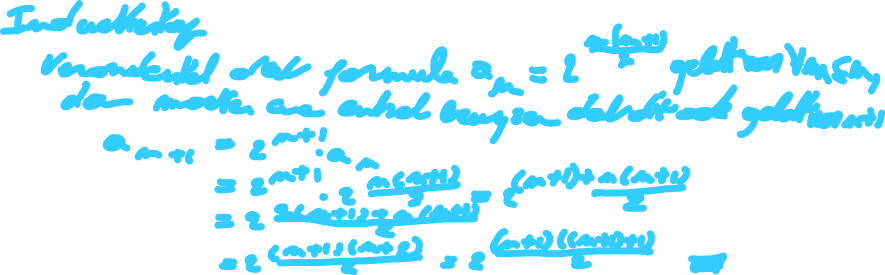 Inductiestap
Veronderstel dat formule a_n = 2^{\frac{n(n+1)}{2}} geldt voor ∀n ≤ n,
dan moeten we enkel bewijzen dat dit ook geldt voor n+1
a_{n+1} = 2^{n+1} · a_n
= 2^{n+1} · 2^{\frac{n(n+1)}{2}} = 2^{(n+1) + \frac{n(n+1)}{2}}
= 2^{\frac{2(n+1) + n(n+1)}{2}}
= 2^{\frac{(n+1)(n+2)}{2}} = 2^{\frac{(n+1)((n+1)+1)}{2}} ■